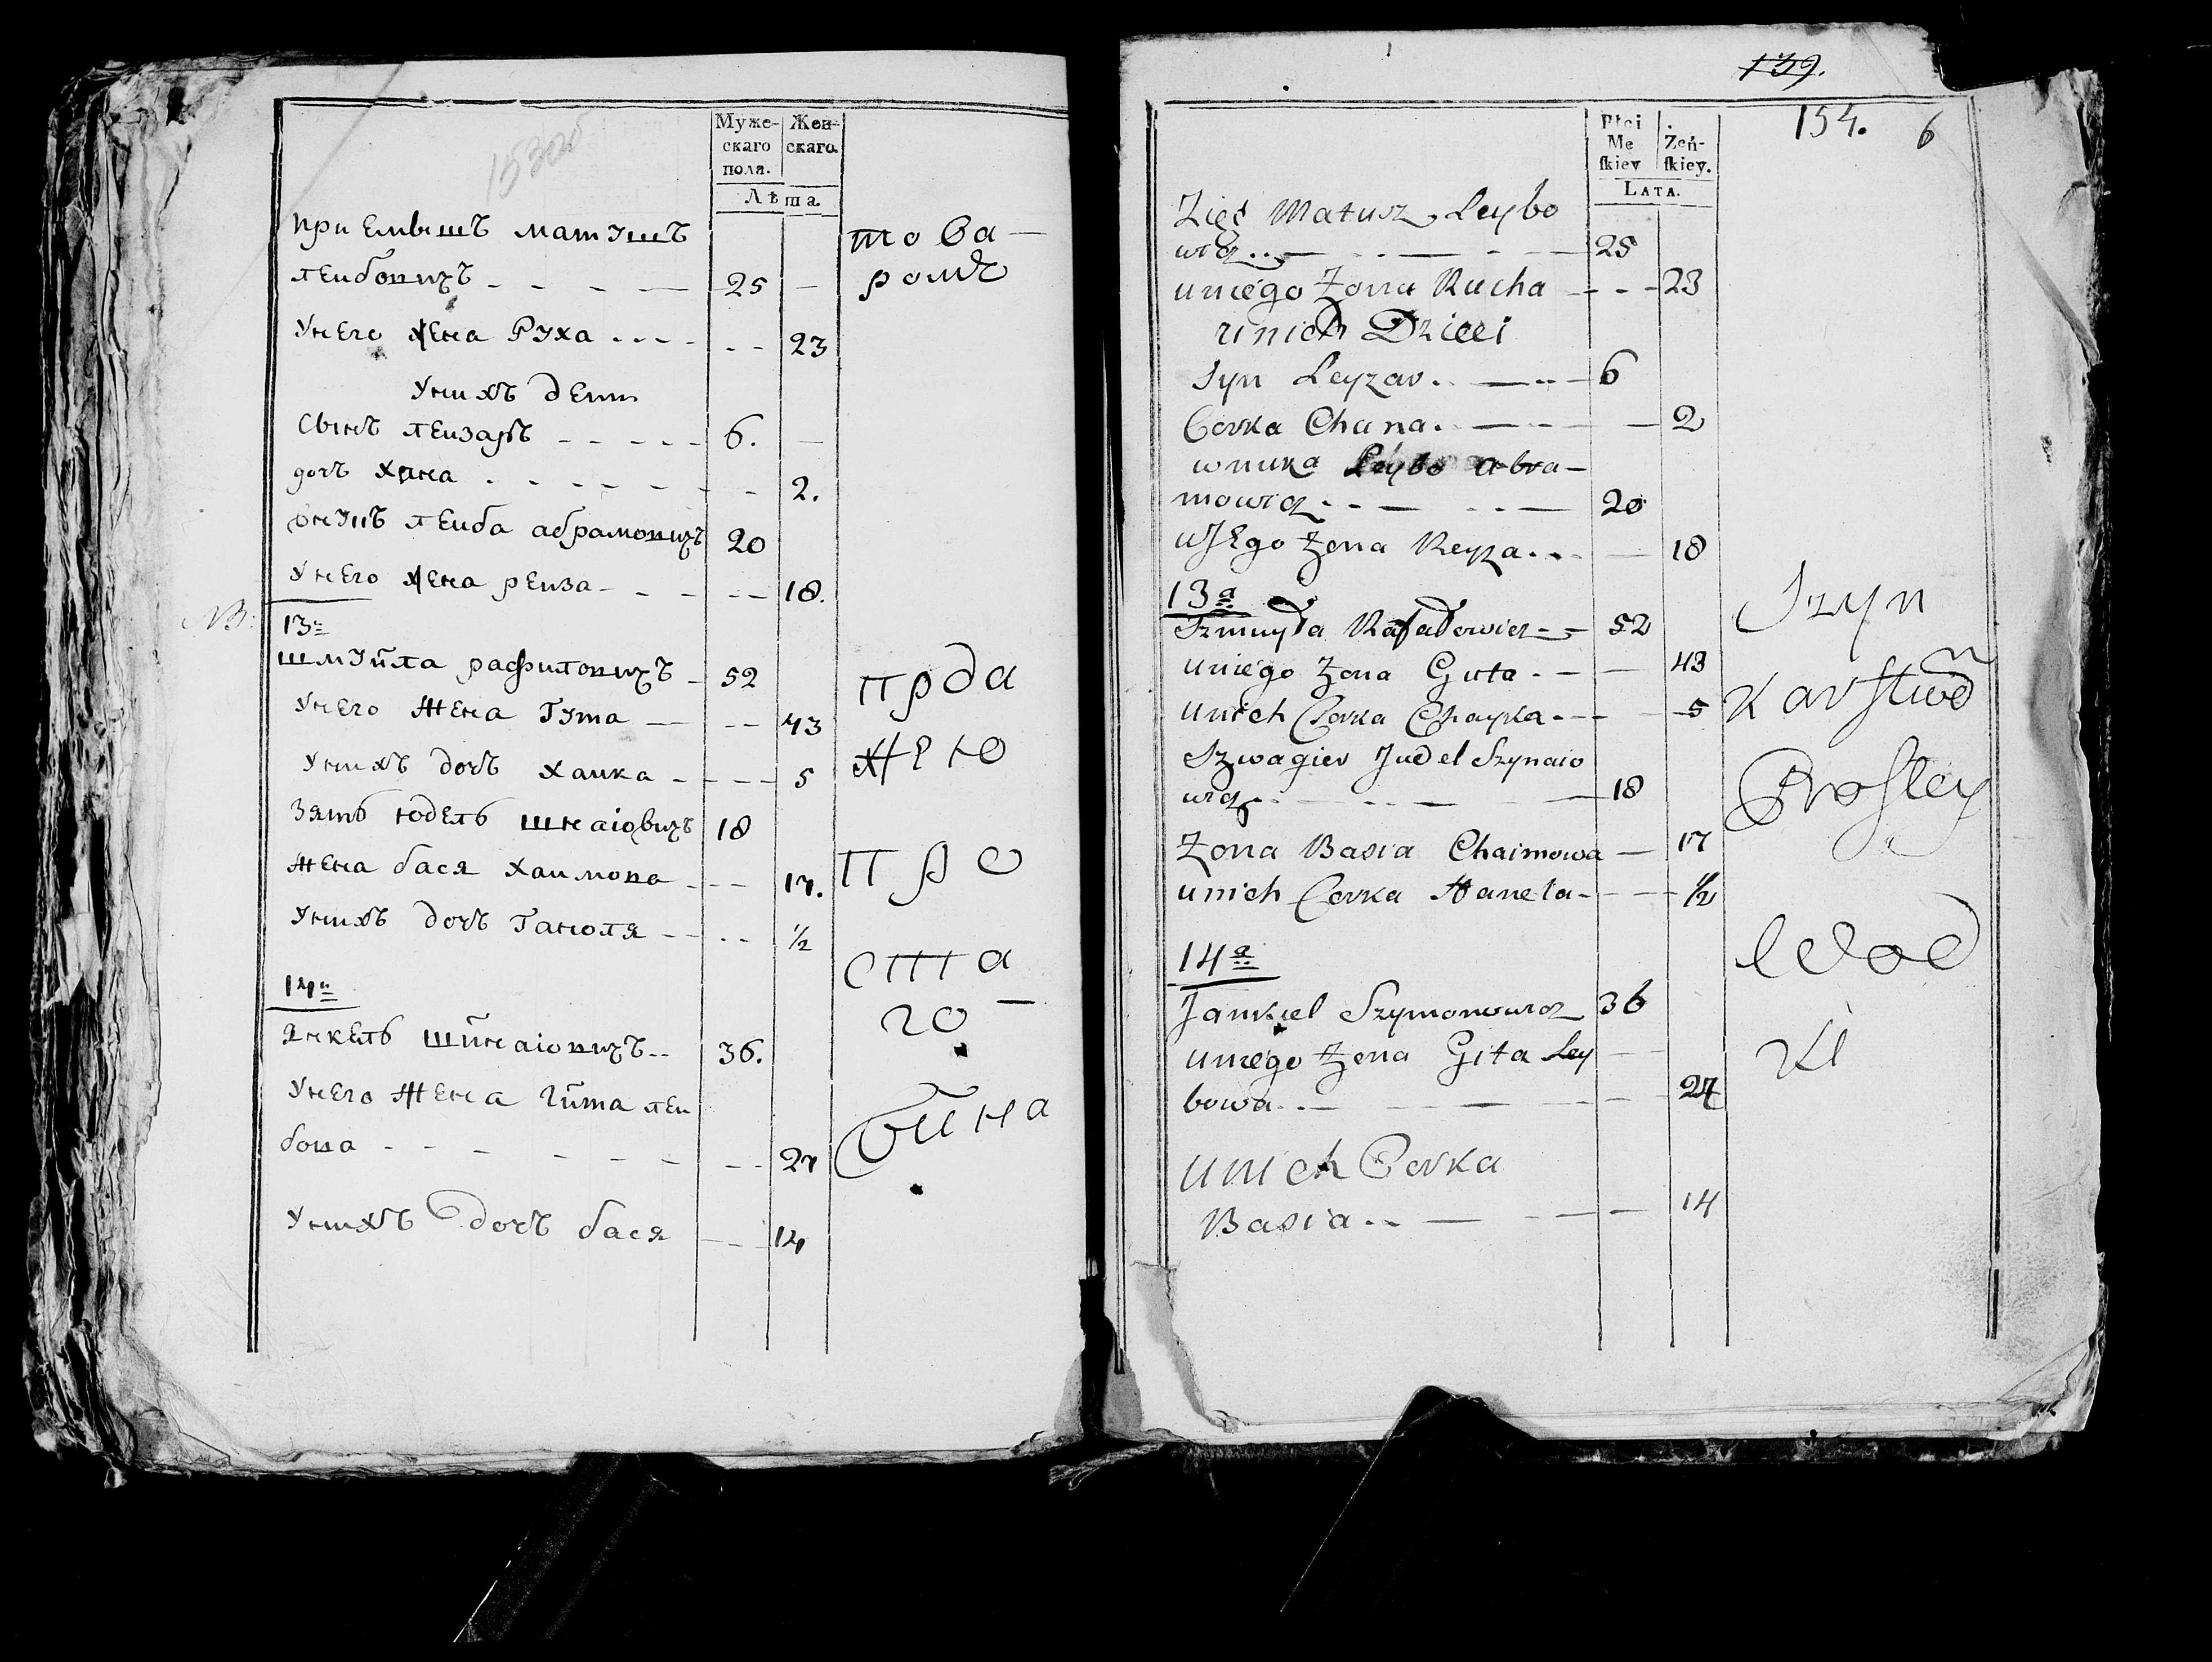 153об
Муже-
скаго
пола.
Жен-
скаго.
Лѣта.
приемышъ матушъ
лейбовичъ 25
унего жена Руха 23
унихъ дети
сынъ лейзаръ 6.
дочъ хана 2.
внукъ лейба абрамовичъ 20
унего жена рейза 18.
NB:
13й
шмуйла рафиловичъ 52
унего жена Гута 43
унихъ дочъ хаика 5
Зять юдель шнаіовичъ 18
жена бася хаимова 17.
унихъ дочъ Ганюля 1/2
14й
янкель шйнаіовичъ 36.
унего жена гйта леи
бова 27
унихъ дочъ бася 14
това-
ромъ
прда
жею
про
ста
го
вина
139.
154. 6
Płci
Mę
ſkiey
Żeń-
ſkiey.
LATA.
Zięć Matusz Leybo
wicz 25
uniego Zona Rucha 23
unich Dzieci
Syn Leyzar 6
Corka Chana 2
wnuka Leybo abra-
mowicz 20
uJEgo Zona Reyza 18
13a
Szmuyła Rafałowicz 52
uniego Zona Guta 43
unich Corka Chayka 5
Szwagier Judel Szynaio
wicz 18
Zona Basia Chaimowa 17
unich Corka Hanela 1/2
14a
Jankiel Szymonowicz 36
uniego Zona Gita Ley
bowa 27
unich Corka
Basia 14
Szyn
karſtwem
Proſtey
Wod
ki